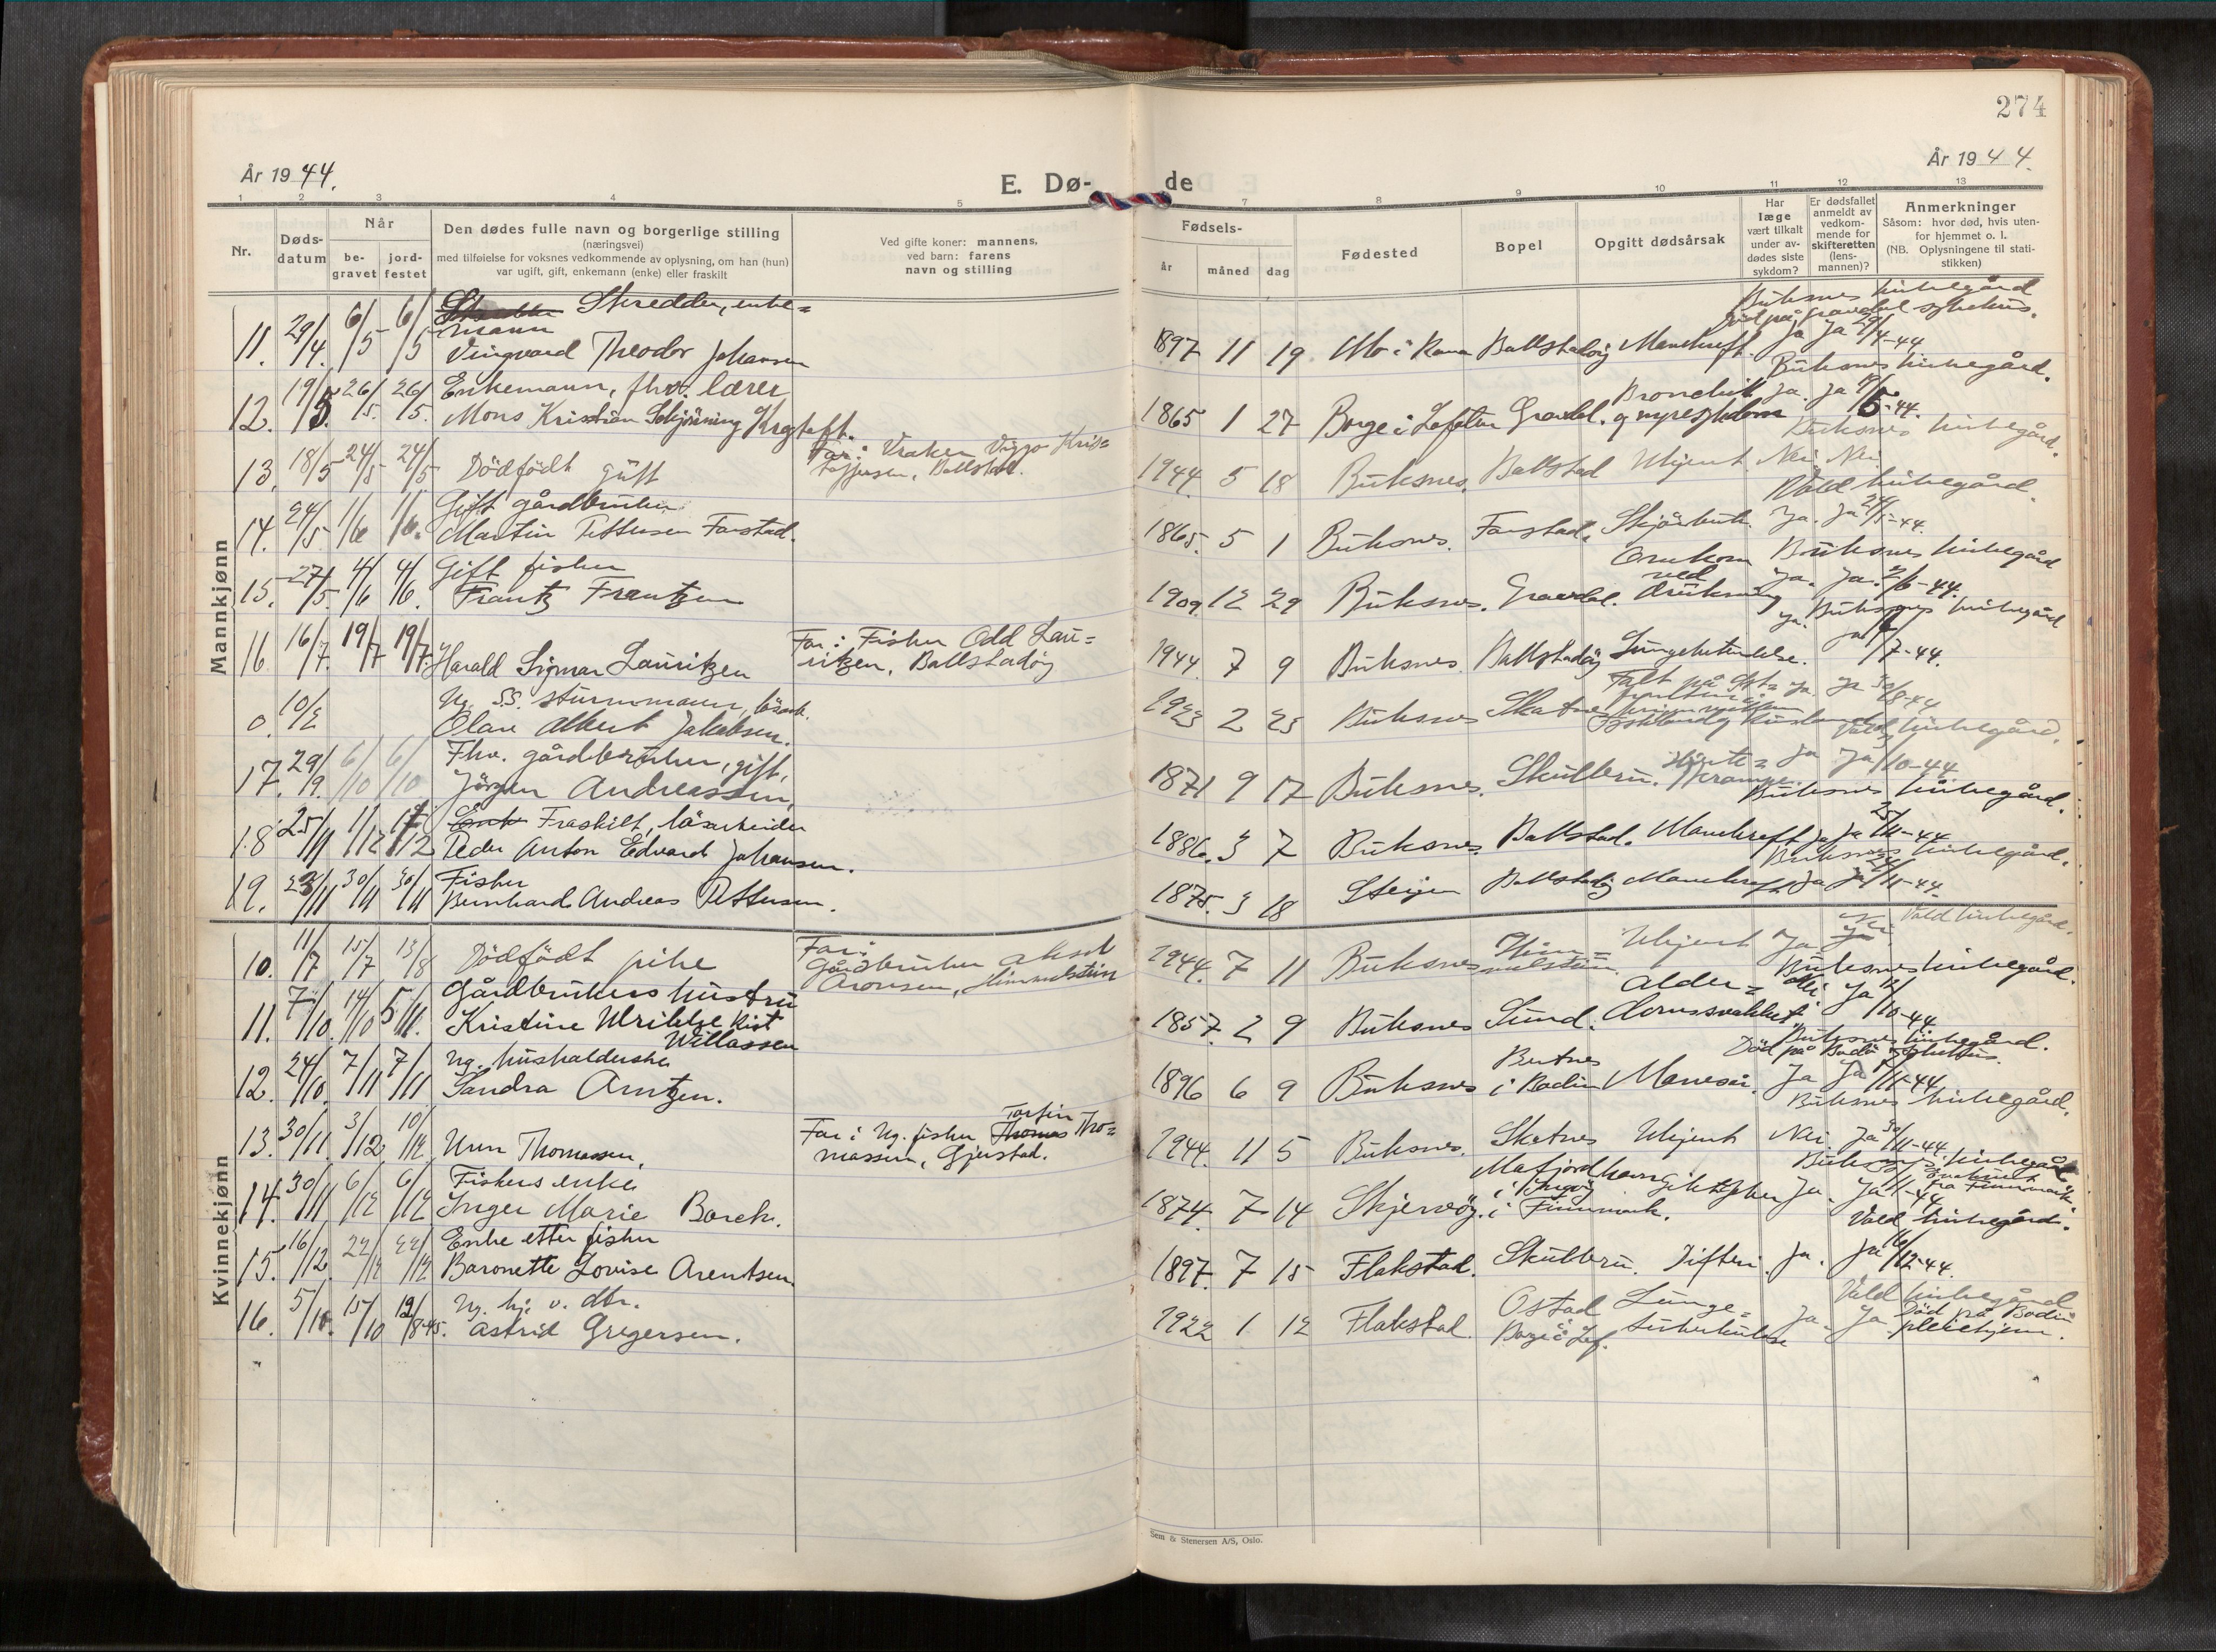 274
År 1944.
År 1944.
E. Dø-
de
1 2 3 4 5
7 8 9 10 11 12 13
Nr.
Døds-
datum
Når
be-
gravet
jord-
festet
Den dødes fulle navn og borgerlige stilling
(næringsvei)
med tilføielse for voksnes vedkommende av oplysning, om han (hun)
var ugift, gift, enkemann (enke) eller fraskilt
Ved gifte koner: mannens,
ved barn: farens
navn og stilling
Fødsels-
år måned dag
Fødested
Bopel
Opgitt dødsårsak
Har
læge
vært tilkalt
under av-
dødes siste
sykdom?
Er dødsfallet
anmeldt av
vedkom-
mende for
skifteretten
(lens-
mannen)?
Anmerkninger
Såsom: hvor død, hvis uten-
for hjemmet o. l.
(NB. Oplysningene til stati-
stikken)
Mannkjønn
Skredder, enke=
mann
11. 29/4. 6/5 6/5 Vingvard Theodor Johansen
1897 11 19 Ballstadøy Mavekreft. Ja Ja 29/4-44
Buksnes kirkegård
Enkemann, fhv. lærer
12. 19/5. 26/5. 26/5. Mons Kristian Schjöning Krogtoft.
1865 1 27 Borge i Lofoten Gravdal. Bronchit og nyresykdom ja. ja
Buksnes kirkegård.
13. 18/5 24/5 24/5 Dödfödt gutt
Far: Vraker Viggo Kris=
toffersen, Ballstad.
1944. 5 18 Buksnes. Ballstad Ukjent Nei Nei
Buksnes kirkegård.
Gift gårdbruker
14. 24/5 1/6 1/6. Martin Pettersen Farstad.
1865. 5 1 Buksnes. Farstad. Ja. Ja
Vold kirkegård.
Gift fisker
15. 27/5. 4/6 4/6. Frantz Frantzen
1909. 12 29 Buksnes. Gravdal. Omkom ved drukning Ja. Ja.
Buksnes kirkegård
16 16/7. 19/7 19/7. Harald Sigmar Lauritzen
Far: Fisker Odd Lau=
ritzen, Ballstadöy
1944 7 9 Buksnes. Ballstadöy Lungebetendelse. ja. ja 7-44.
Buksnes kirkegård
Ug. S.S. sturmmann, lösarb.
0. 10/2 Olav Albert Jakobsen.
1923 2 25 Buksnes Falt på Öst= ja. ja
Fhv. gårdbruker, gift,
17. 29/9. 6/10 6/10 Jörgen Andreassen,
1871 9 17 Buksnes. Skulbru. Hjerte= krampe. ja Ja 10-44.
Vold kirkegård.
Fraskilt, lösarbeider
18 25/11 1/12 Peder Anton Edvard Johansen.
1886. 3 7 Buksnes. Ballstad. Mavekreft ja ja 25/11-44
Buksnes kirkegård.
Fisker
19. 23/11 30/11 30/11 Bernhard Andreas Pettersen.
1875. 3 18 Steigen Ballstadöy Mavekreft. Ja ja 11-44.
Buksnes kirkegård.
Kvinnekjønn
10. 11/7 15/7 13/8 Dödfödt pike
Far:
Gårdbruker Aksel
Aronsen, Himmelstein
1944. 7 11 Buksnes Him= melstein. Ukjent Ja
Vold kirkegård.
Gårdbrukers hustru
11. 7/10. 14/10 5/11. Kristine Ulrikke Rist
Willassen
1857. 2 9 Buksnes Sund. Alder= domssvakhet Nei. Ja 10-44.
Buksnes kirkegård.
Ug. husholderske
12. 24/10. 7/11 7/11 Sandra Arntzen.
1896 6 9 Buksnes Bertnes i Bodin Mavesår. Ja Ja 11-44.
Buksnes kirkegård.
Död på Bodö sykehus.
13. 30/11. 3/12 10/12 Unn Thomassen.
Far: Ug. fisker Torfin Tho=
massen, Gjerstad.
1944. 11 5 Buksnes. Skotnes Ukjent Nei. Ja 30/11-44.
Buksnes kirkegård.
Fiskers enke
14. 30/11 6/12 6/12 Inger Marie Borch.
1874. 7 14 Skjervöy. Mafjordhavn i Ingöy i Finnmark. Ja. Ja 11-44
Buksnes kirkegård
fra Finnmark.
Enke etter fisker
15. 16/12. 22/12 22/12 Baronette Lovise Arentsen
1897. 7 15 Flakstad. Skulbru. Difteri. Ja. Ja 12-44.
Vold kirkegård.
Ug. hj. v. dtr.
16. 5/10. 15/10 12/8-45. Astrid Gregersen.
1922 1 12 Flakstad. Ostad Borge i Lof. Lunge= tuberkulose Ja. Ja
Vold kirkegård
Död på Bodin
pleiehjem.
Sem & Stenersen A/S, Oslo.